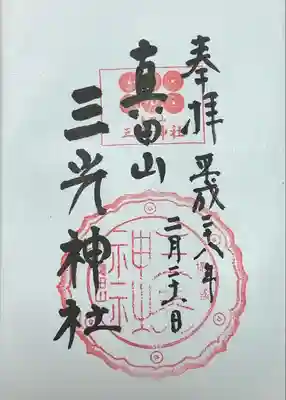 奉拝
平成二十八年
二月二十六日
真田山
三光神社